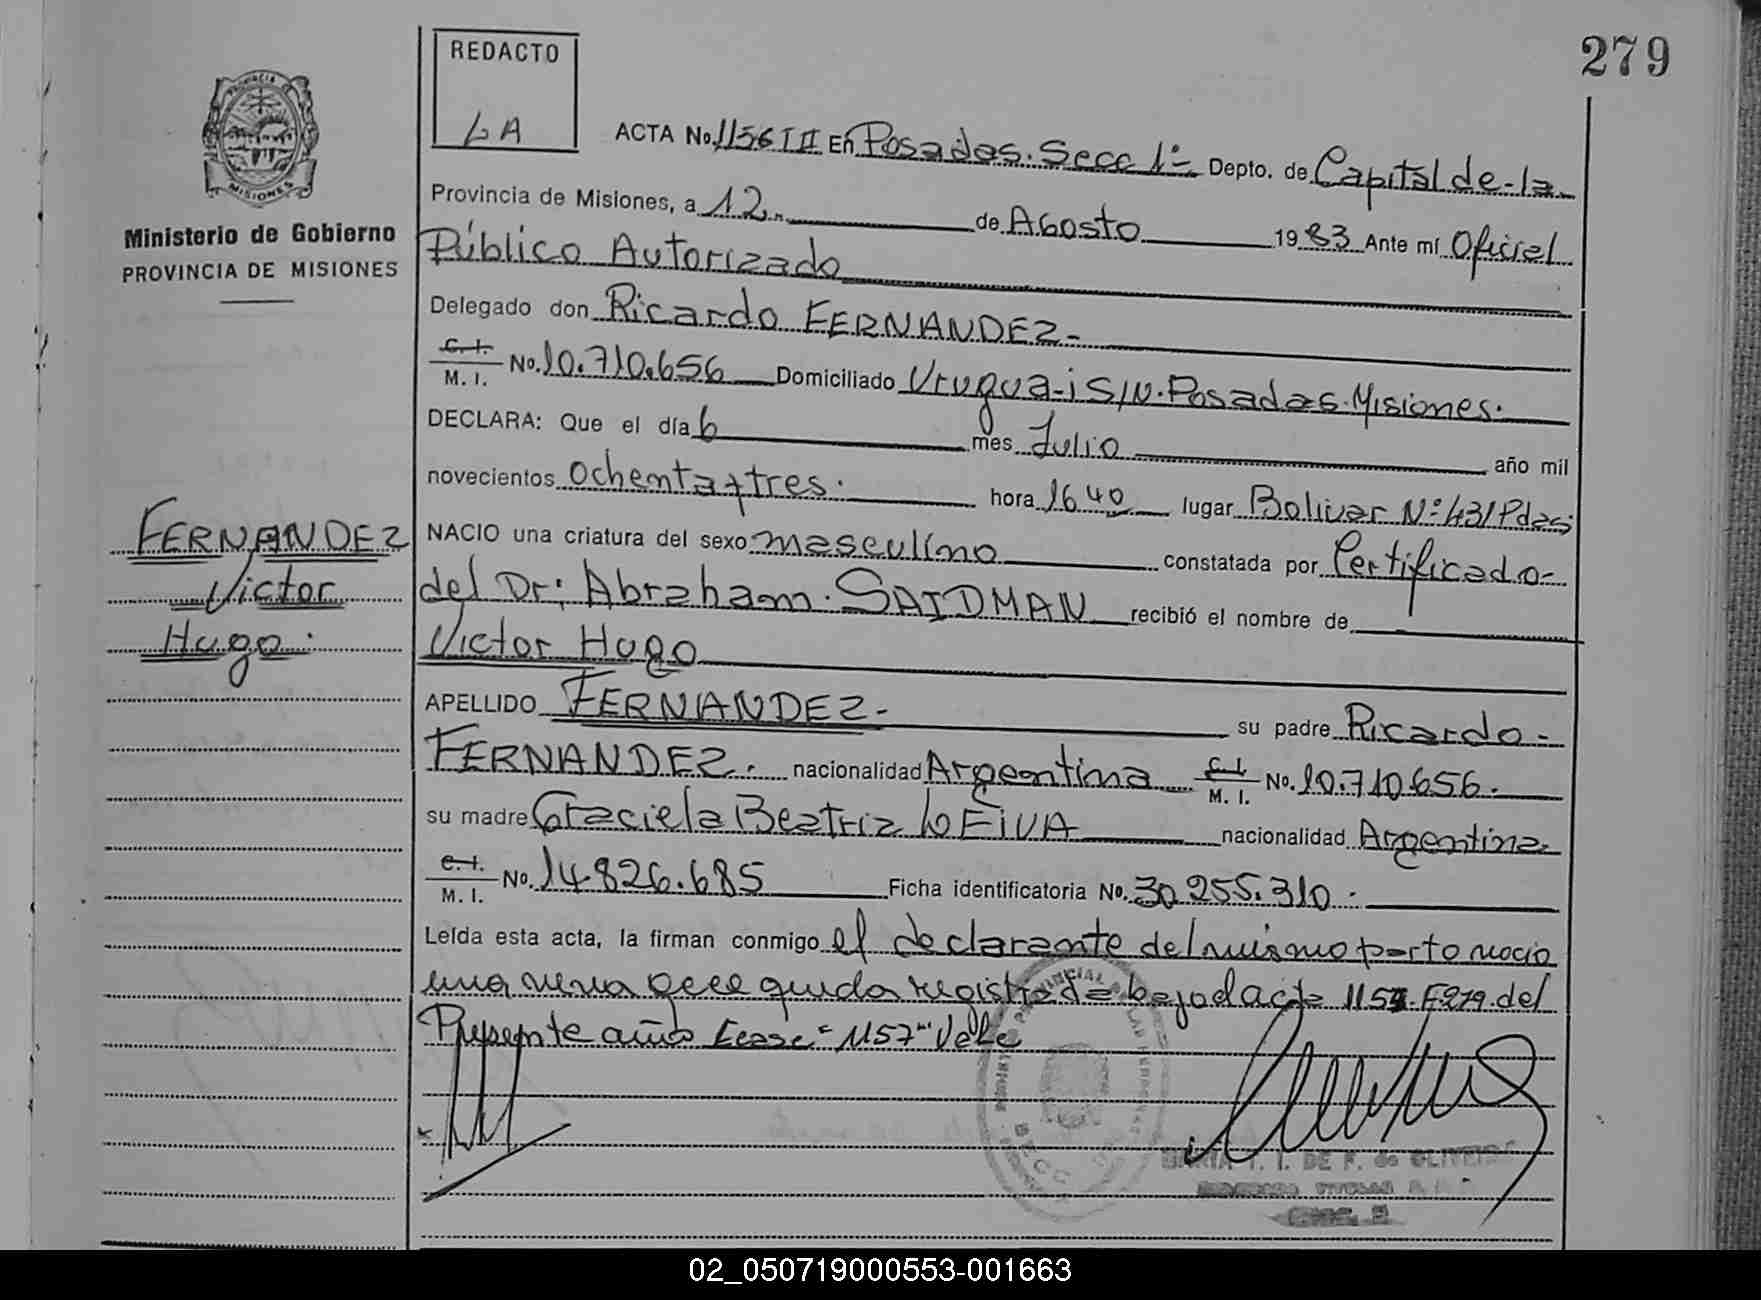 279
REDACTO
LA
PROVINCIA DE
MISIONES
Ministerio de Gobierno
PROVINCIA DE MISIONES
ACTA No. 1156 T II En Posadas. Secc 1º- Depto. de Capital de-la-
Provincia de Misiones, a 12.- de Agosto 1983 Ante mí Oficial
Público Autorizado
Delegado don Ricardo FERNANDEZ-
C. I. M. I. No. 10.710.656 Domiciliado Urugua-i S/N. Posadas. Misiones.
DECLARA: Que el día 6 mes Julio año mil
novecientos ochenta y tres. hora 16 40 lugar Bolivar Nº 431 Pdas;
FERNANDEZ
Victor
Hugo.
NACIO una criatura del sexo masculino constatada por Certificado-
del Dr: Abraham. SAIDMAN recibió el nombre de
Victor Hugo
APELLIDO FERNANDEZ- su padre Ricardo-
FERNANDEZ. nacionalidad Argentina C. I. M. I. No. 10.710.656.
su madre Graciela Beatriz LEIVA nacionalidad Argentina.
C. I. M. I. No. 14.826.685 Ficha identificatoria No. 30.255.310.
Leída esta acta, la firman conmigo el declarante del mismo parto nacio
una nena que queda registrada bajo el acta F279 del
Presente año "1157" Vale
MARIA T. I. DE F. de OLIVEIRA
02_050719000553-001663